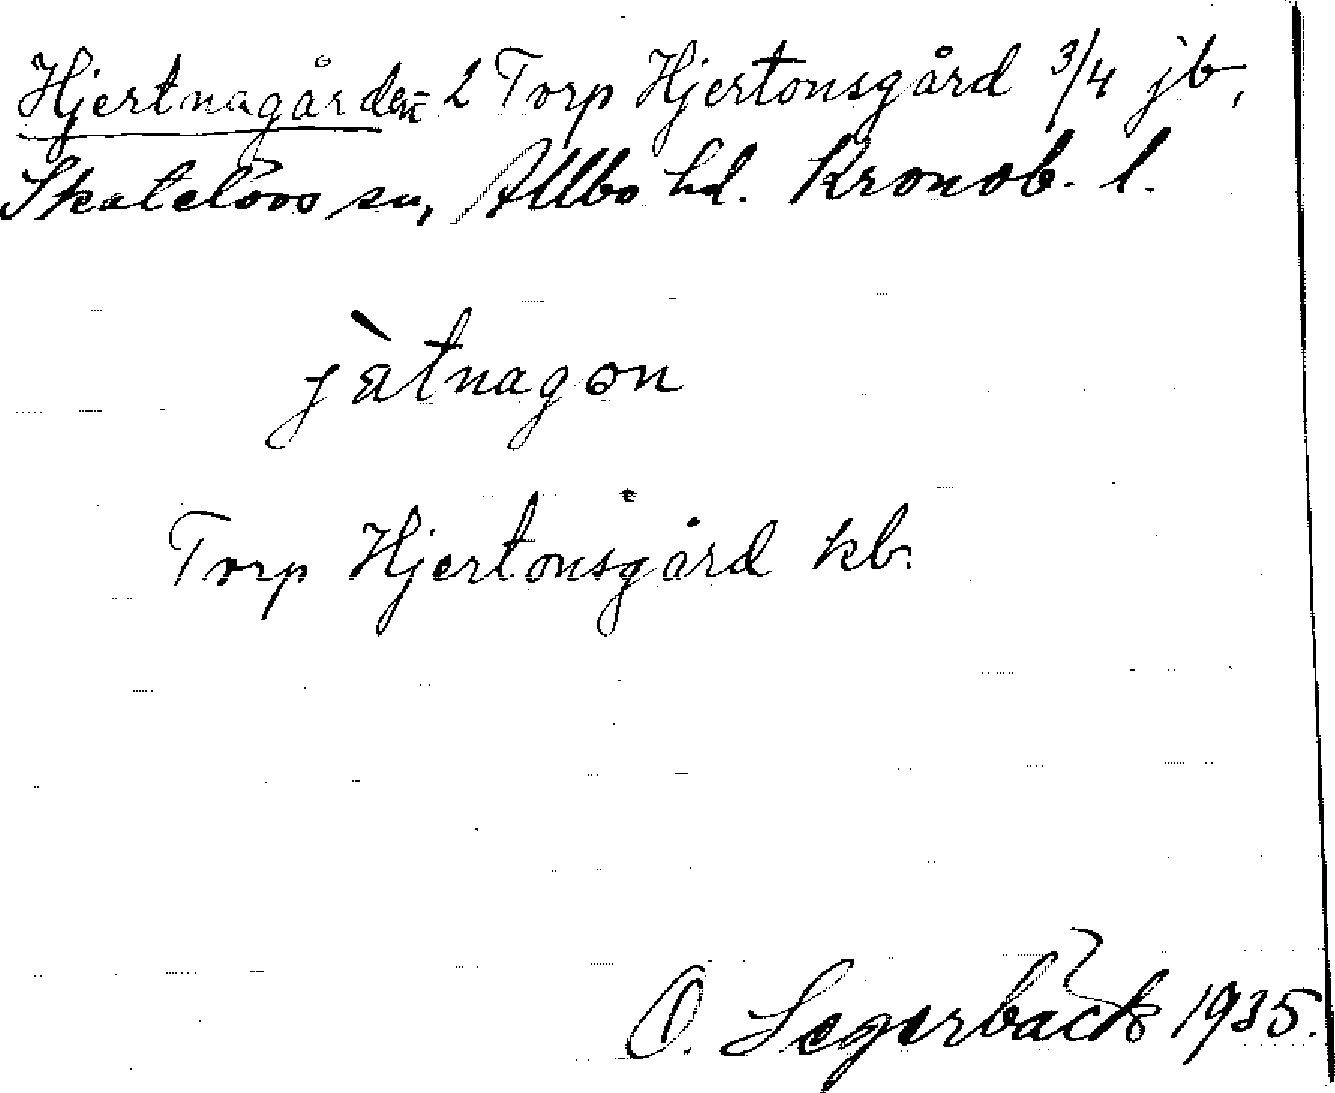 Hjertnagården = 2 Torp Hjertonsgård 3/4 jb,
Skatelövs sn, Allbo hd. Kronob. l.
jàtnagon
Torp Hjertonsgård kb.
O. Segerbäck 1935.